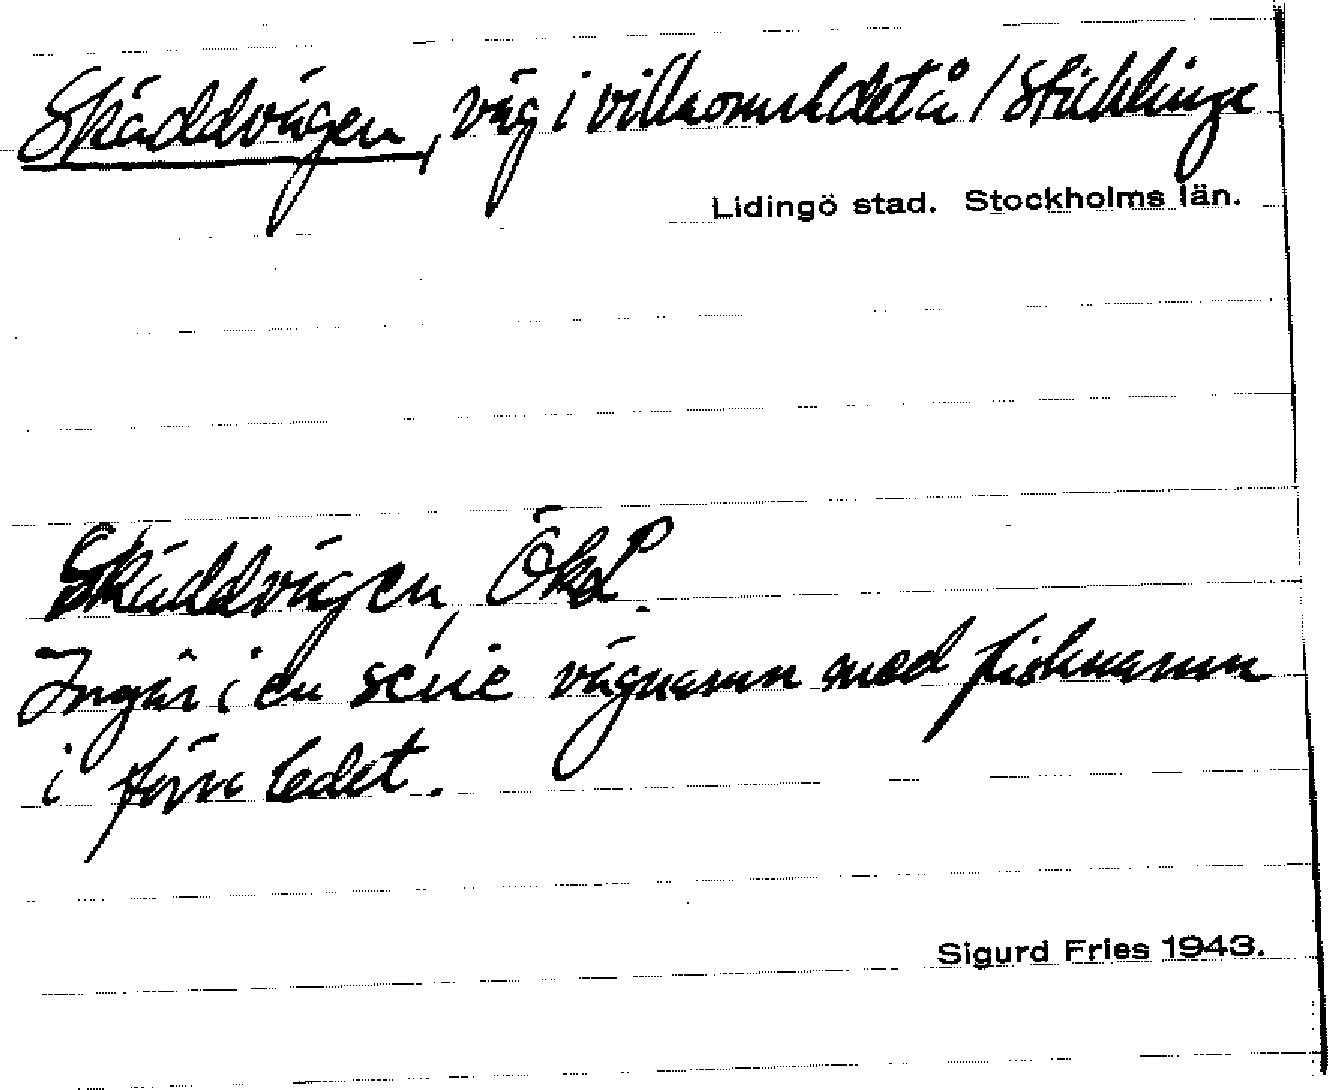 Skäddvägen, väg i villaområdet å / Sticklinge
Lidingö stad. Stockholms län.
Skäddvägen, ÖkL.
Ingår i en serie vägnamn med fisknamn
i förra ledet.
Sigurd Fries 1943.